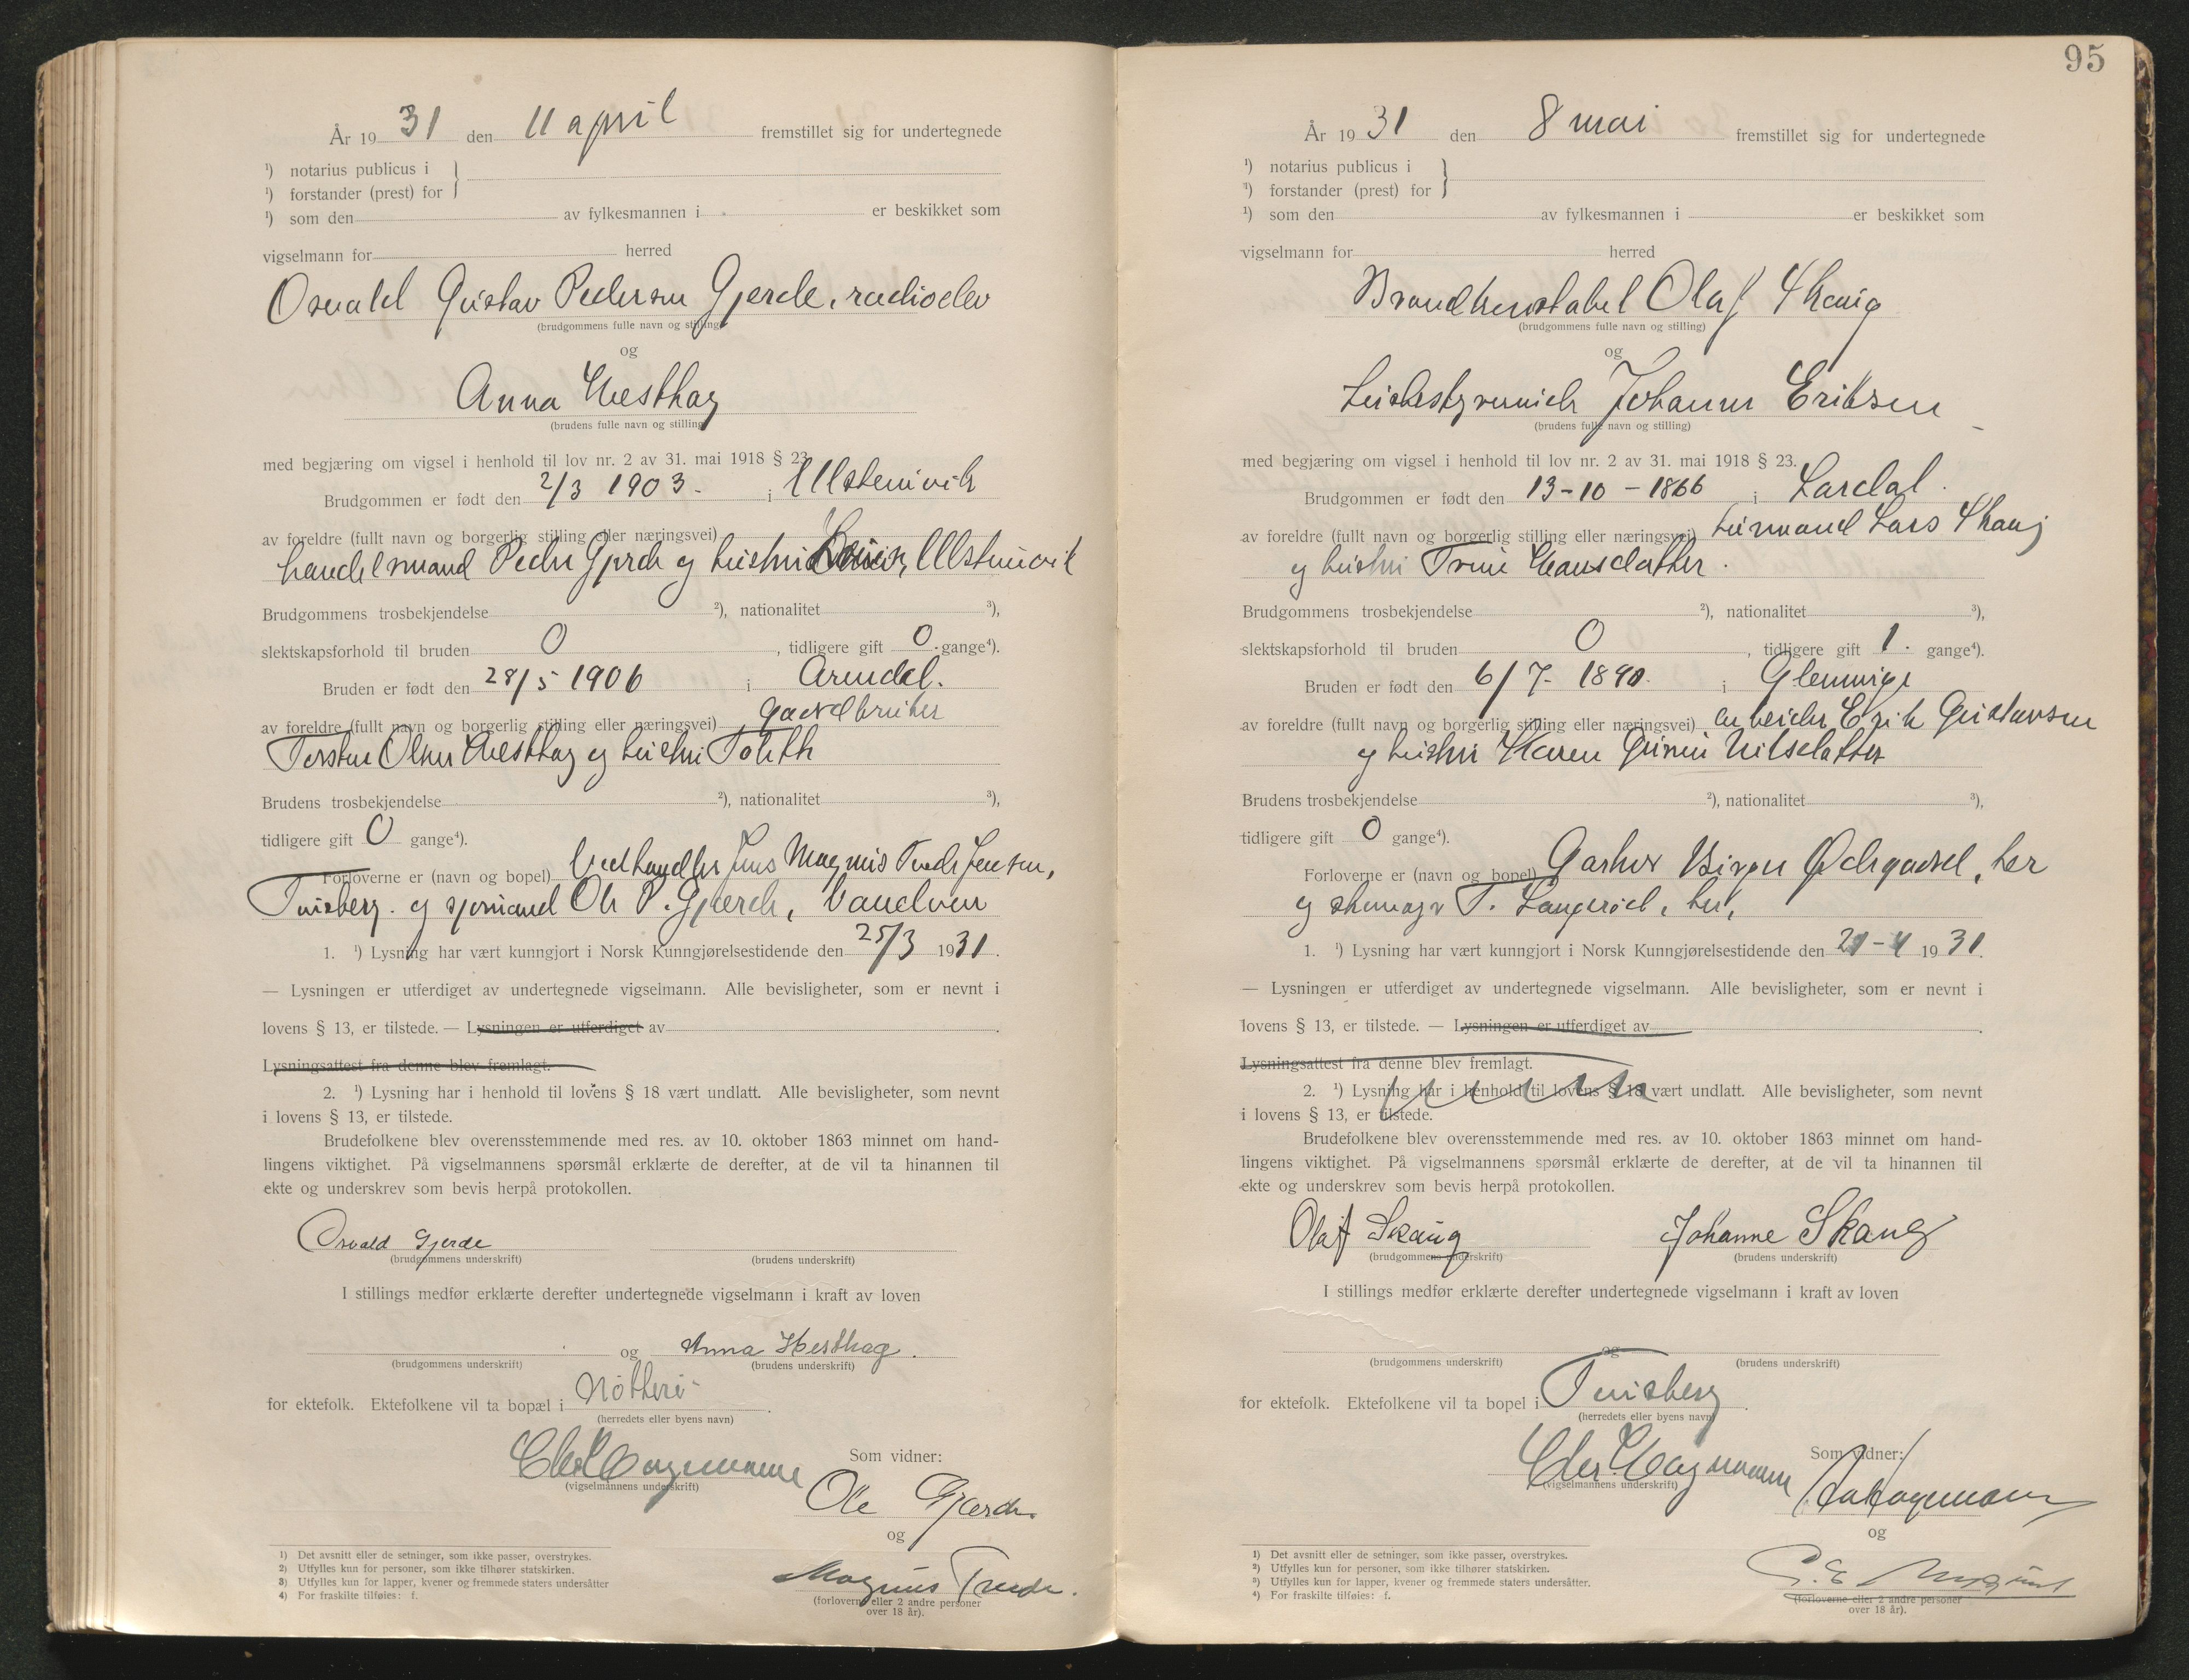 År 19 31 den 11 april fremstillet sig for undertegnede
¹) notarius publicus i
¹) forstander (prest) for
¹) som den av fylkesmannen i er beskikket som
vigselmann for herred
Osvald Gustav Pedersen Gjerde, radioelev
(brudgommens fulle navn og stilling)
og
Anna Hesthag
(brudens fulle navn og stilling)
med begjæring om vigsel i henhold til lov nr. 2 av 31. mai 1918 § 23.
Brudgommen er født den 2/3 1903 - i Ulsteinvik
av foreldre (fullt navn og borgerlig stilling eller næringsvei)
handelsmand Peder Gjerde og hustru Ulsteinvik
Brudgommens trosbekjendelse ²), nationalitet ³),
slektskapsforhold til bruden 0, tidligere gift 0 gange⁴).
Bruden er født den 28/5 1906 i Arendal.
av foreldre (fullt navn og borgerlig stilling eller næringsvei) gaardbruker
Torsten Olsen Hesthag og hustru
Brudens trosbekjendelse ²), nationalitet ³),
tidligere gift 0 gange⁴).
Forloverne er (navn og bopel) Vedhandler Jens Magnus Trede Jensen,
Tønsberg. og sjømand Ole P. Gjerde, Vandven
1. ¹) Lysning har vært kunngjort i Norsk Kunngjørelsestidende den 25/3 1931.
— Lysningen er utferdiget av undertegnede vigselmann. Alle bevisligheter, som er nevnt i
lovens § 13, er tilstede. — Lysningen er utferdiget av
Lysningsattest fra denne blev fremlagt.
2. ¹) Lysning har i henhold til lovens § 18 vært undlatt. Alle bevisligheter, som nevnt
i lovens § 13, er tilstede.
Brudefolkene blev overensstemmende med res. av 10. oktober 1863 minnet om hand-
lingens viktighet. På vigselmannens spørsmål erklærte de derefter, at de vil ta hinannen til
ekte og underskrev som bevis herpå protokollen.
Osvald Gjerde
(brudgommens underskrift) (brudens underskrift)
I stillings medfør erklærte derefter undertegnede vigselmann i kraft av loven
og Anna Hesthag.
(brudgommens underskrift) (brudens underskrift)
for ektefolk. Ektefolkene vil ta bopæl i Nøtterø
(herredets eller byens navn)
Chr. Hagemann Som vidner:
(vigselmannens underskrift)
Ole Gjerde.
og
Magnus Trede.
(forloverne eller 2 andre personer
over 18 år).
1) Det avsnitt eller de setninger, som ikke passer, overstrykes.
2) Utfylles kun for personer, som ikke tilhører statskirken.
3) Utfylles kun for lapper, kvener og fremmede staters undersåtter
4) For fraskilte tilføies: f.
95
År 19 31 den 8 mai fremstillet sig for undertegnede
¹) notarius publicus i
¹) forstander (prest) for
¹) som den av fylkesmannen i er beskikket som
vigselmann for herred
Brandkonstabel Olaf Skaug
(brudgommens fulle navn og stilling)
og
Husbestyrerinde Johanne Eriksen
(brudens fulle navn og stilling)
med begjæring om vigsel i henhold til lov nr. 2 av 31. mai 1918 § 23.
Brudgommen er født den 13-10-1866 i Lardal.
av foreldre (fullt navn og borgerlig stilling eller næringsvei) husmand Lars Skaug
og hustru Trine Hansdatter.
Brudgommens trosbekjendelse ²), nationalitet ³),
slektskapsforhold til bruden 0, tidligere gift 1. gange⁴).
Bruden er født den 6/7- 1890. i Glemmige
av foreldre (fullt navn og borgerlig stilling eller næringsvei) arbeider Erik Gustavsen
og hustru Karen Gurine Nilsdatter
Brudens trosbekjendelse ²), nationalitet ³),
tidligere gift 0 gange⁴).
Forloverne er (navn og bopel) Garver Birger Ødegaard, her
og skomager T. Langerød, her,
1. ¹) Lysning har vært kunngjort i Norsk Kunngjørelsestidende den 21-4 1931.
— Lysningen er utferdiget av undertegnede vigselmann. Alle bevisligheter, som er nevnt i
lovens § 13, er tilstede. — Lysningen er utferdiget av
Lysningsattest fra denne blev fremlagt.
2. ¹) Lysning har i henhold til lovens § 18 vært undlatt. Alle bevisligheter, som nevnt
i lovens § 13, er tilstede.
Brudefolkene blev overensstemmende med res. av 10. oktober 1863 minnet om hand-
lingens viktighet. På vigselmannens spørsmål erklærte de derefter, at de vil ta hinannen til
ekte og underskrev som bevis herpå protokollen.
Olaf Skaug Johanne Skaug
(brudgommens underskrift) (brudens underskrift)
I stillings medfør erklærte derefter undertegnede vigselmann i kraft av loven
og
(brudgommens underskrift) (brudens underskrift)
for ektefolk. Ektefolkene vil ta bopel i Tønsberg
(herredets eller byens navn)
Chr. Hagemann Som vidner:
(vigselmannens underskrift)
Hagemann
og
(forloverne eller 2 andre personer
over 18 år).
1) Det avsnitt eller de setninger, som ikke passer, overstrykes.
2) Utfylles kun for personer, som ikke tilhører statskirken.
3) Utfylles kun for lapper, kvener og fremmede staters undersåtter.
4) For fraskilte tilføies: f.